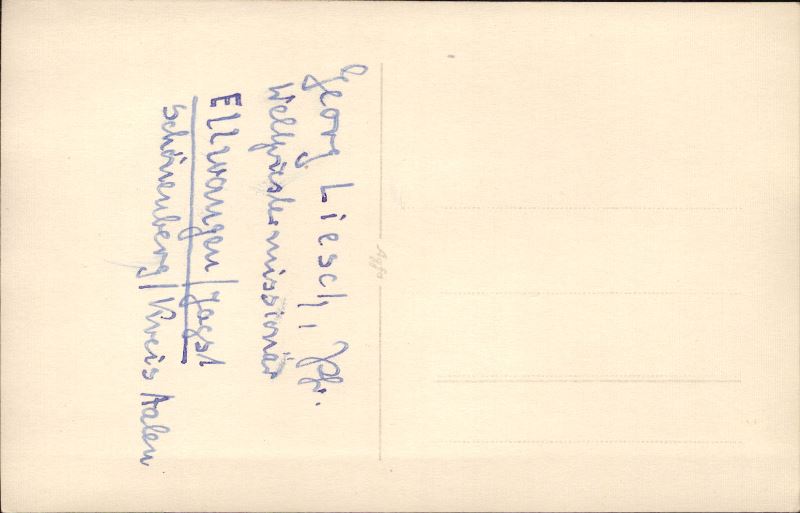 Georg Liesch, Pfr.
Weltpriestermissionär
Ellwangen/Jagst
Schönenberg/Kreis Aalen
Agfa